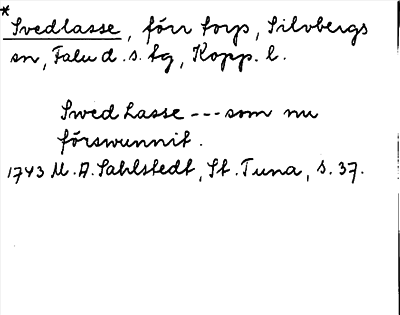 * Svedlasse, förr torp, Silvbergs
sn, Falu d. s. tg, Kopp. l.
Swed Lasse --- som nu
förswunnit.
1743 M. A. Sahlstedt, St. Tuna, s. 37.